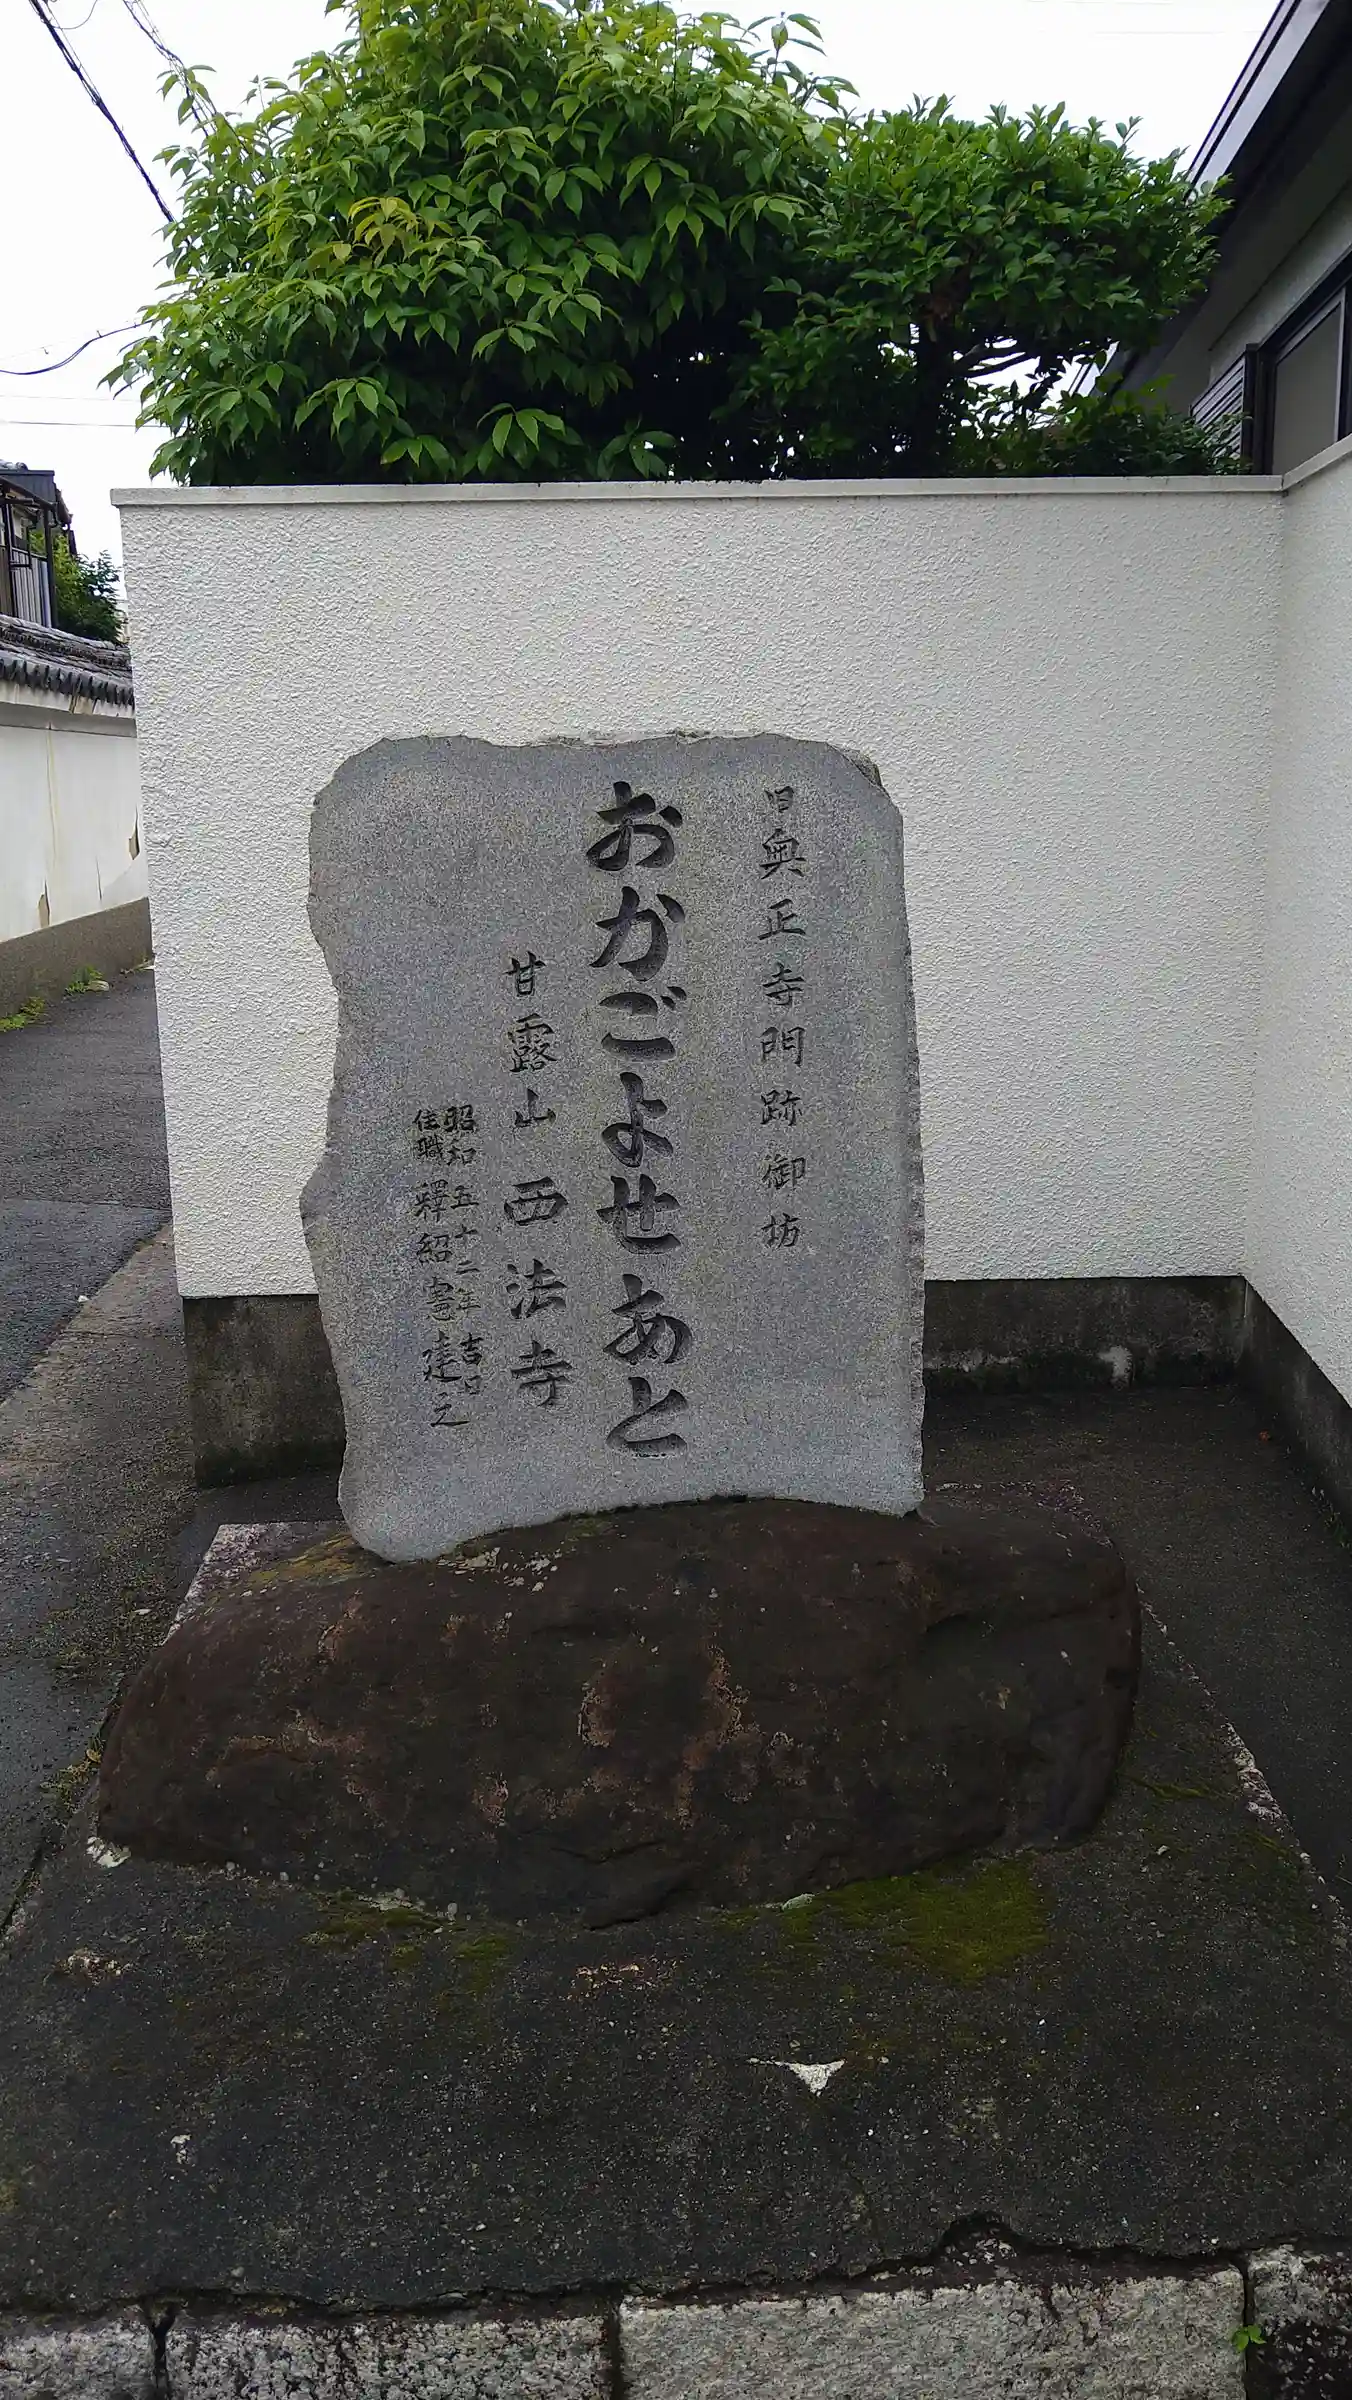 旧奥正寺門跡御坊
おかごよせあと
甘露山 西法寺
昭和五十二年 吉日
住職 釋紹憲建之